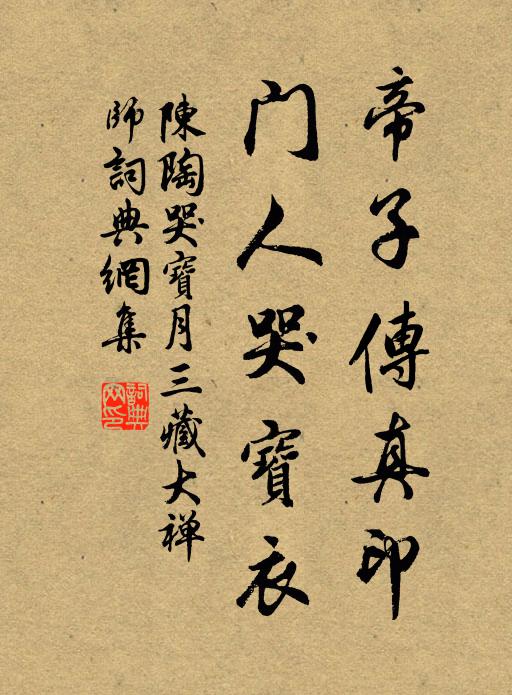 帝子傳真印
門人哭寶衣
陳陶哭寶月三藏大禅
師詞典網集
詞典
網印